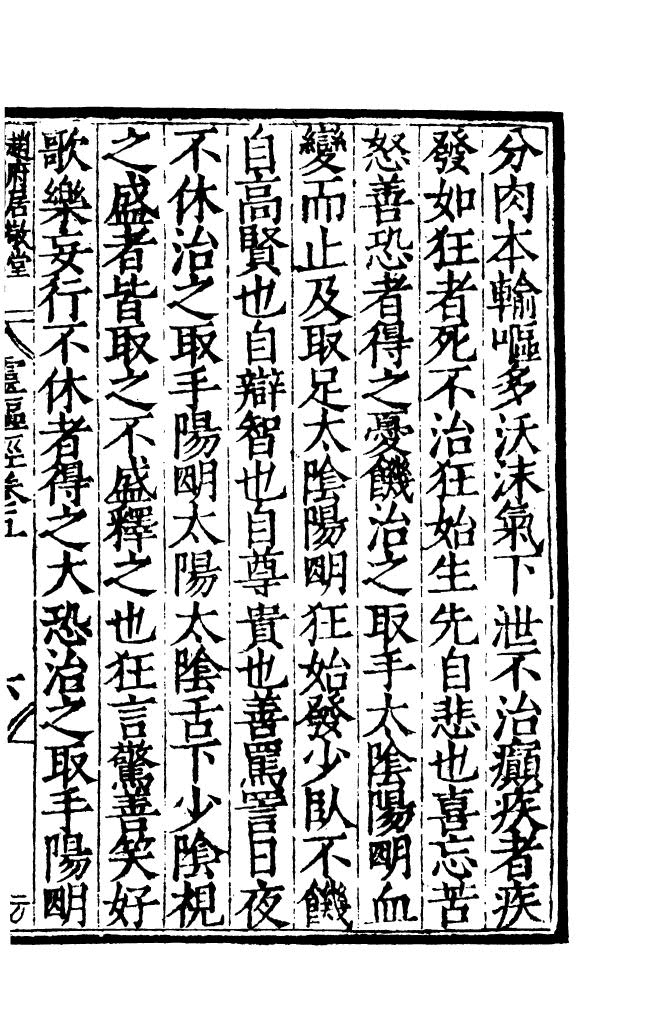 分肉本輸嘔多沃沫氣下泄不治癲疾者疾
發如狂者死不治狂始生先自悲也喜忘苦
怒善恐者得之憂饑治之取手太陰陽明血
變而止及取足太陰陽明狂始發少臥不饑
自高賢也自辯智也自尊貴也善罵詈日夜
不休治之取手陽明太陽太陰舌下少陰視
之盛者皆取之不盛釋之也狂言驚善笑好
歌樂妄行不休者得之大恐治之取手陽明
趙府居敬堂 靈樞經卷之五 六